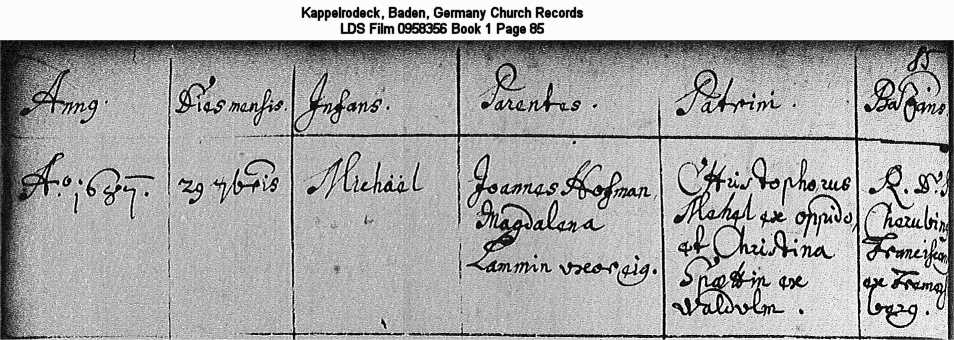 Kappelrodeck, Baden, Germany Church Records
LDS Film 0958356 Book 1 Page 85
85
Anno. Dies mensis. Infans. Parentes. Patrini. Baptizans
Aº. 1687. 29 7bris Michäel Joannes Hofman Christophorus R. D.
Magdalena Mehel ex oppido, Cherubin
Lammin uxor eig. et Christina Franciscan
Spættin ex ex
Waldulm.